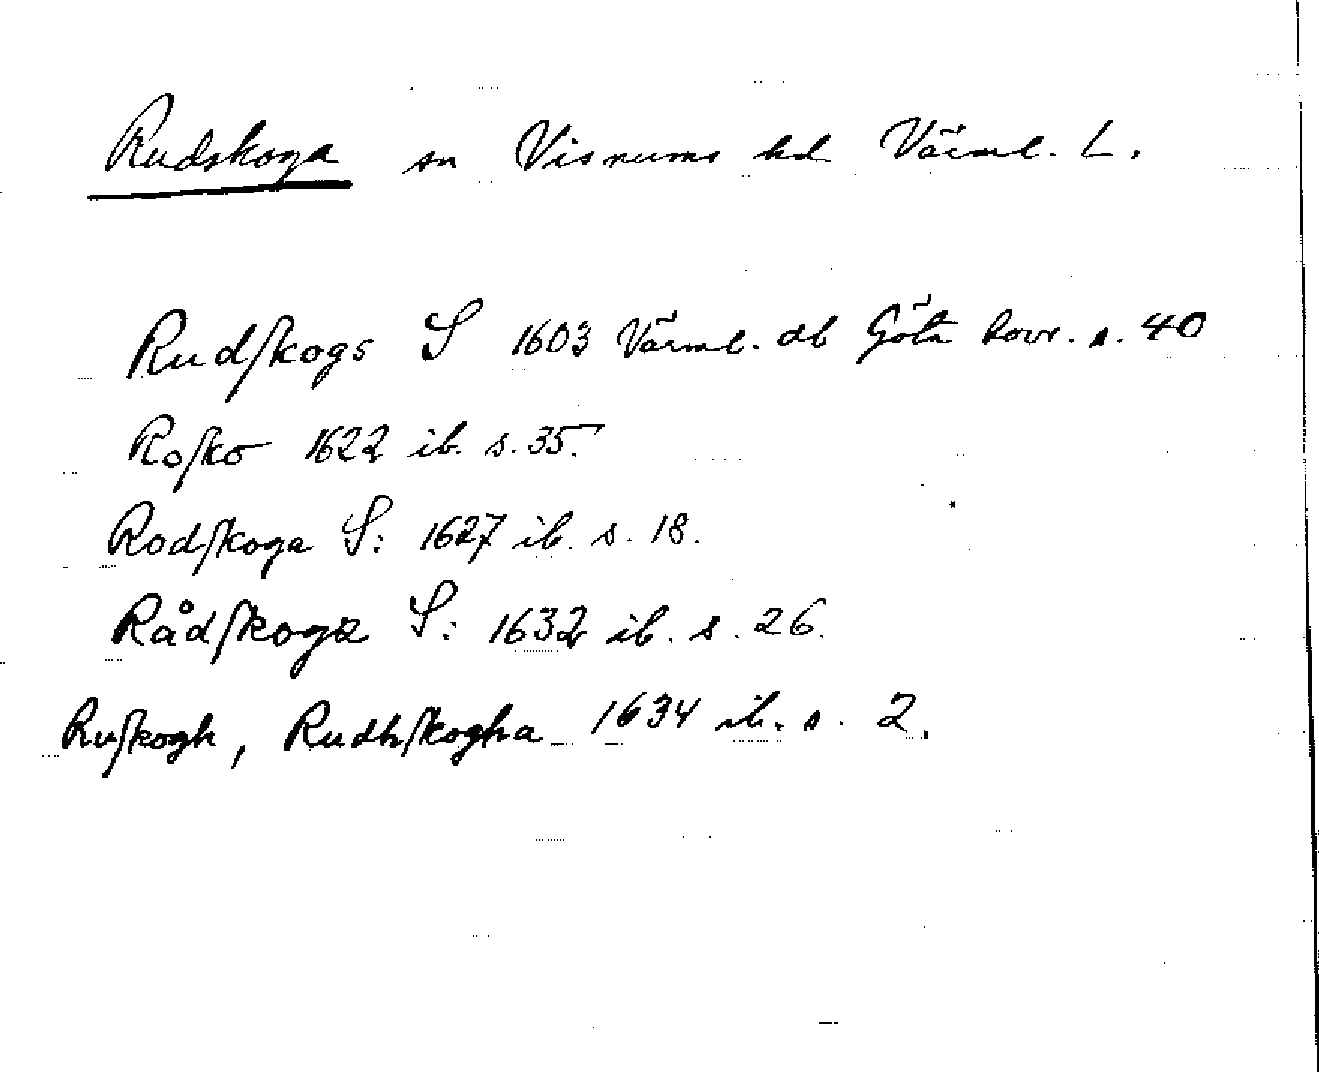 Rudskoga sn Visnums hd Värml. L.
Rudſkogs S 1603 Värml. db Göta hovr. s. 40
Roſko 1622 ib. s. 35.
Rodſkoga S: 1627 ib. s. 18.
Rådſkoga S: 1632 ib. s. 26.
Ruſkogh, Rudhſkogha 1634 ib. s. 2.